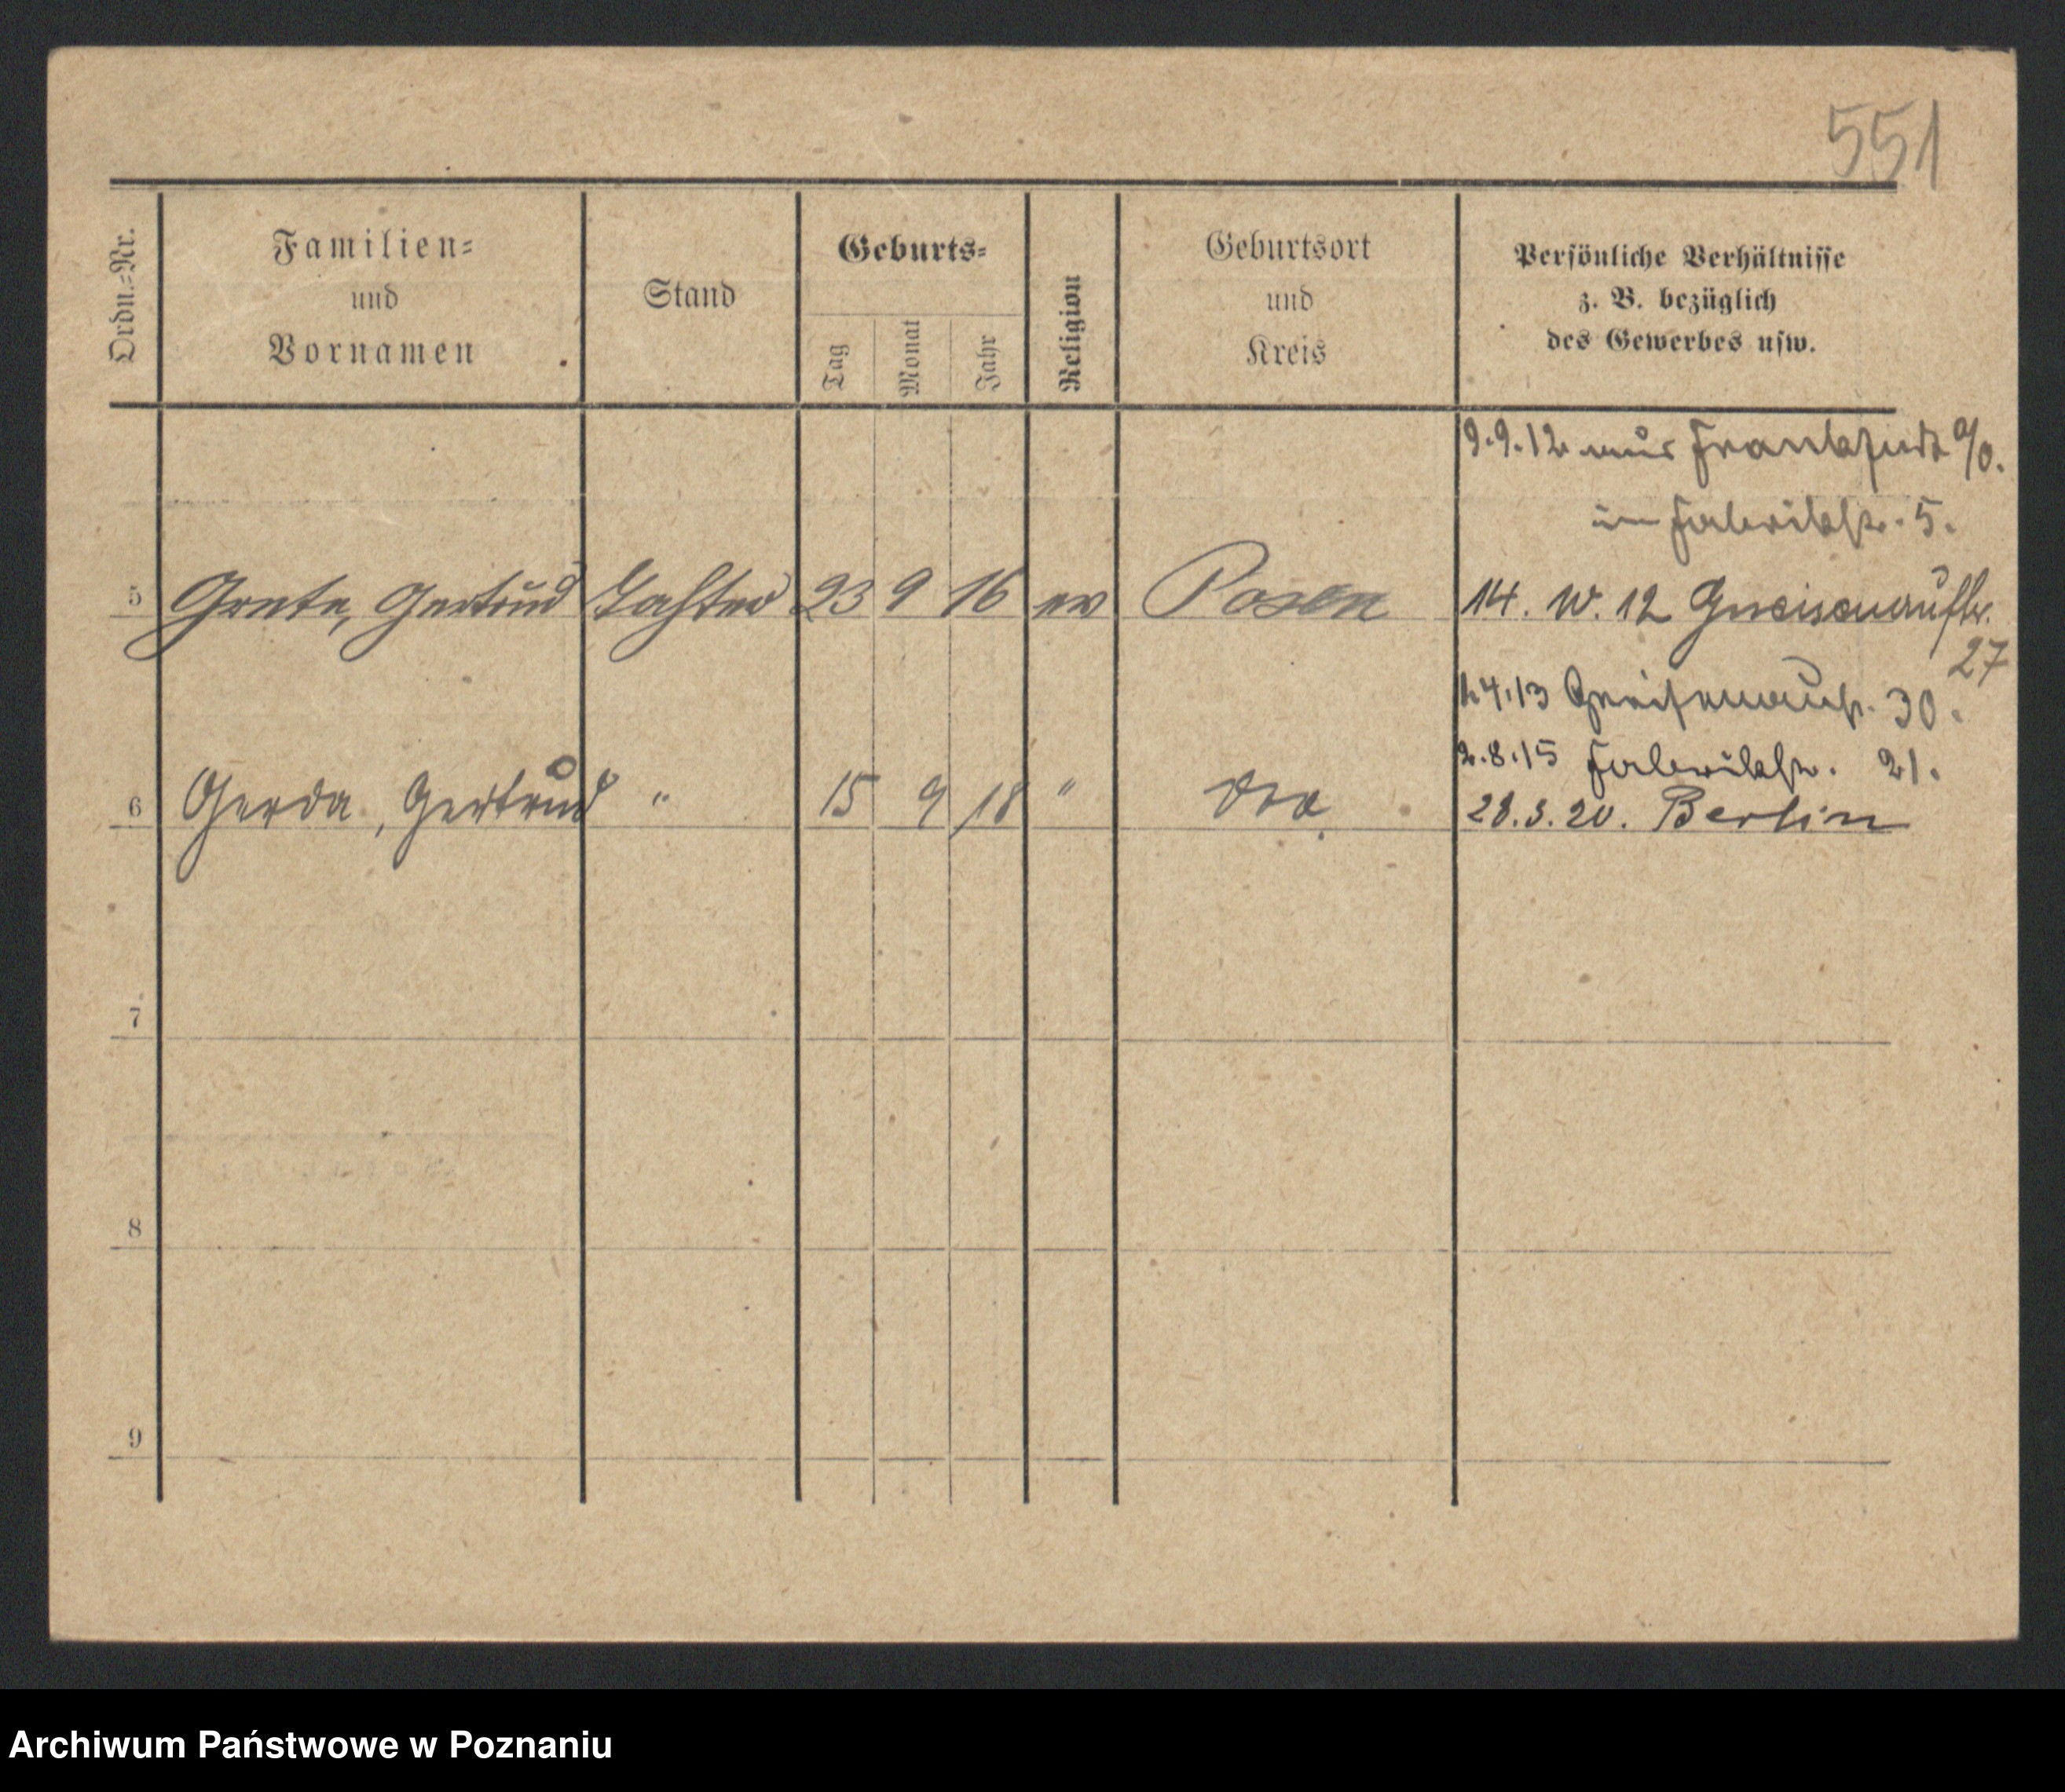 551
Ordn.-Nr.
Familien-
und
Vornamen
Stand
Geburts-
Tag
Monat
Jahr
Religion
Geburtsort
und
Kreis
Persönliche Verhältnisse
z. B. bezüglich
des Gewerbes usw.
9.9.12 aus Frankfurt a/O.
in Fabrikstr. 5.
5 Grete, Gertrud Tochter 23 9 16 ev Posen 14. 10. 12 Gneisenaustr.
27
4.13 Gneisenaustr. 30.
2.8.15 Fabrikstr. 21.
6 Gerda, Gertrud " 15 9 18 " dto. 28.3.20. Berlin
7
8
9
Archiwum Państwowe w Poznaniu